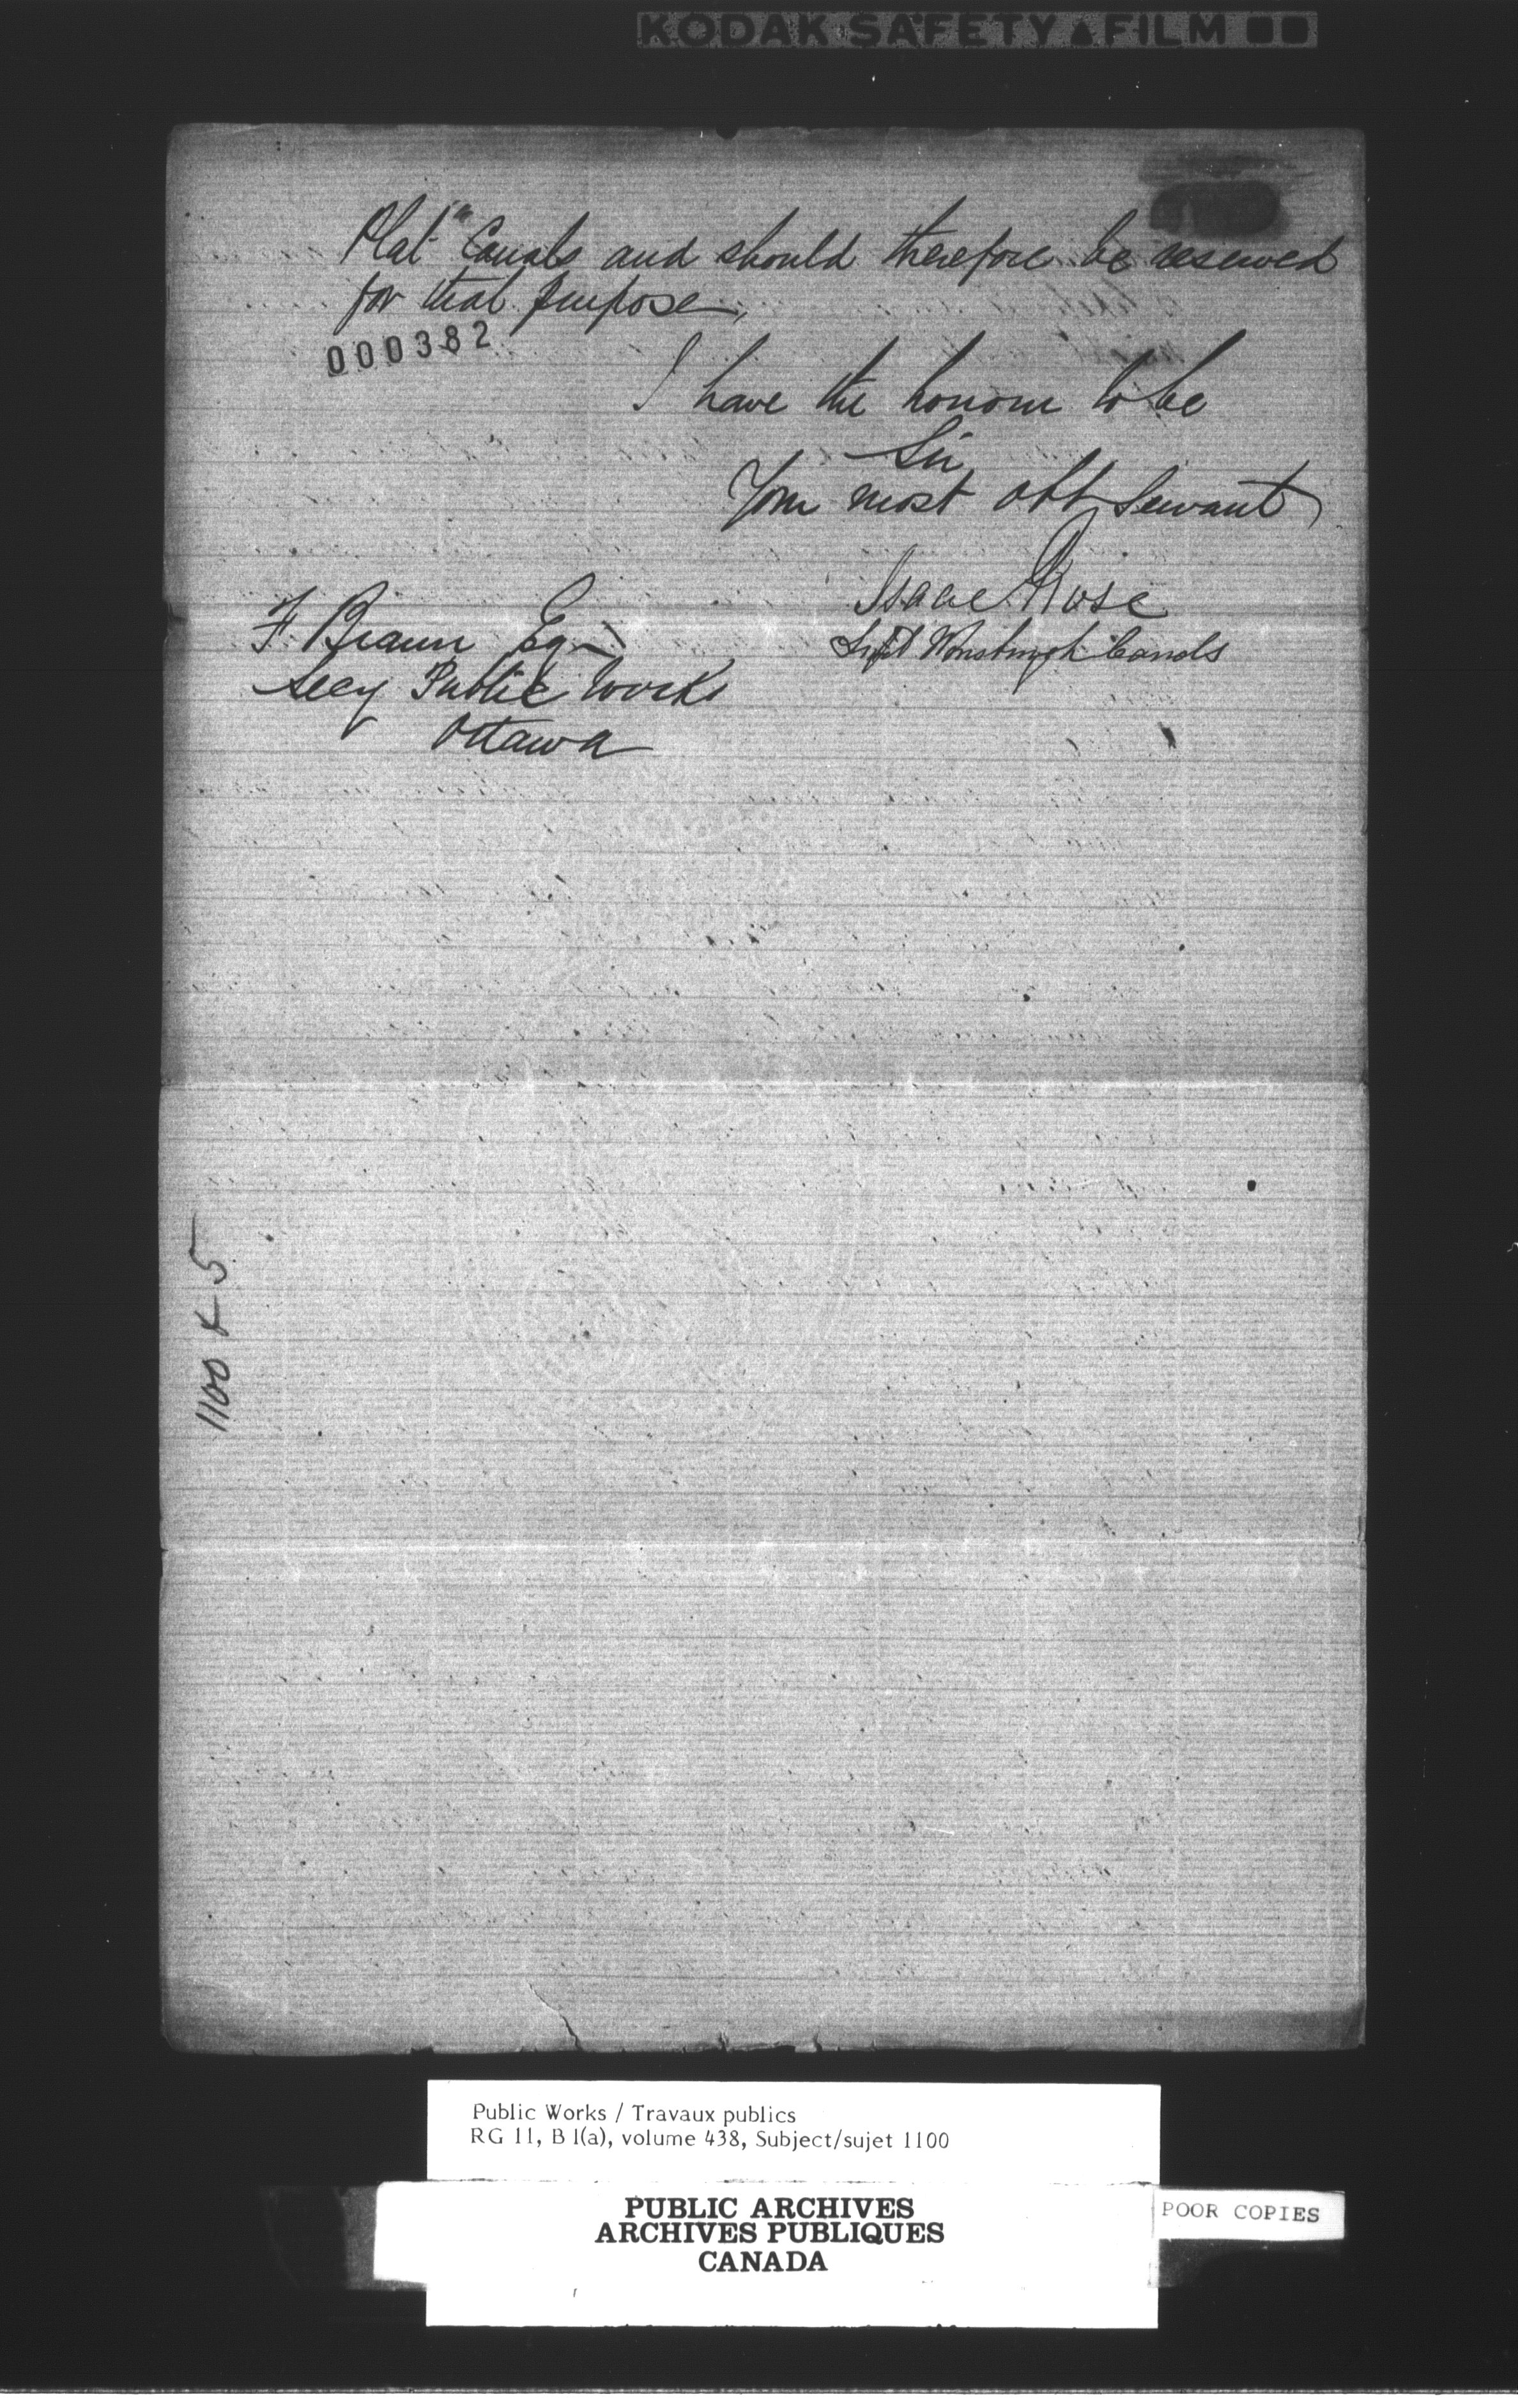 KODAK SAFETY FILM
Plat" Canals and should therefore be reserved
for that purpose,
000382
I have the honour to be
Sir
Your most obt Servant
Isaac Rose
Supt Wmsburgh Canals
F. Braun Esq
Secy Public Works
Ottawa
1100 5
Public Works / Travaux publics
RG 11, B 1(a), volume 438, Subject/sujet 1100
PUBLIC ARCHIVES
ARCHIVES PUBLIQUES
CANADA
POOR COPIES